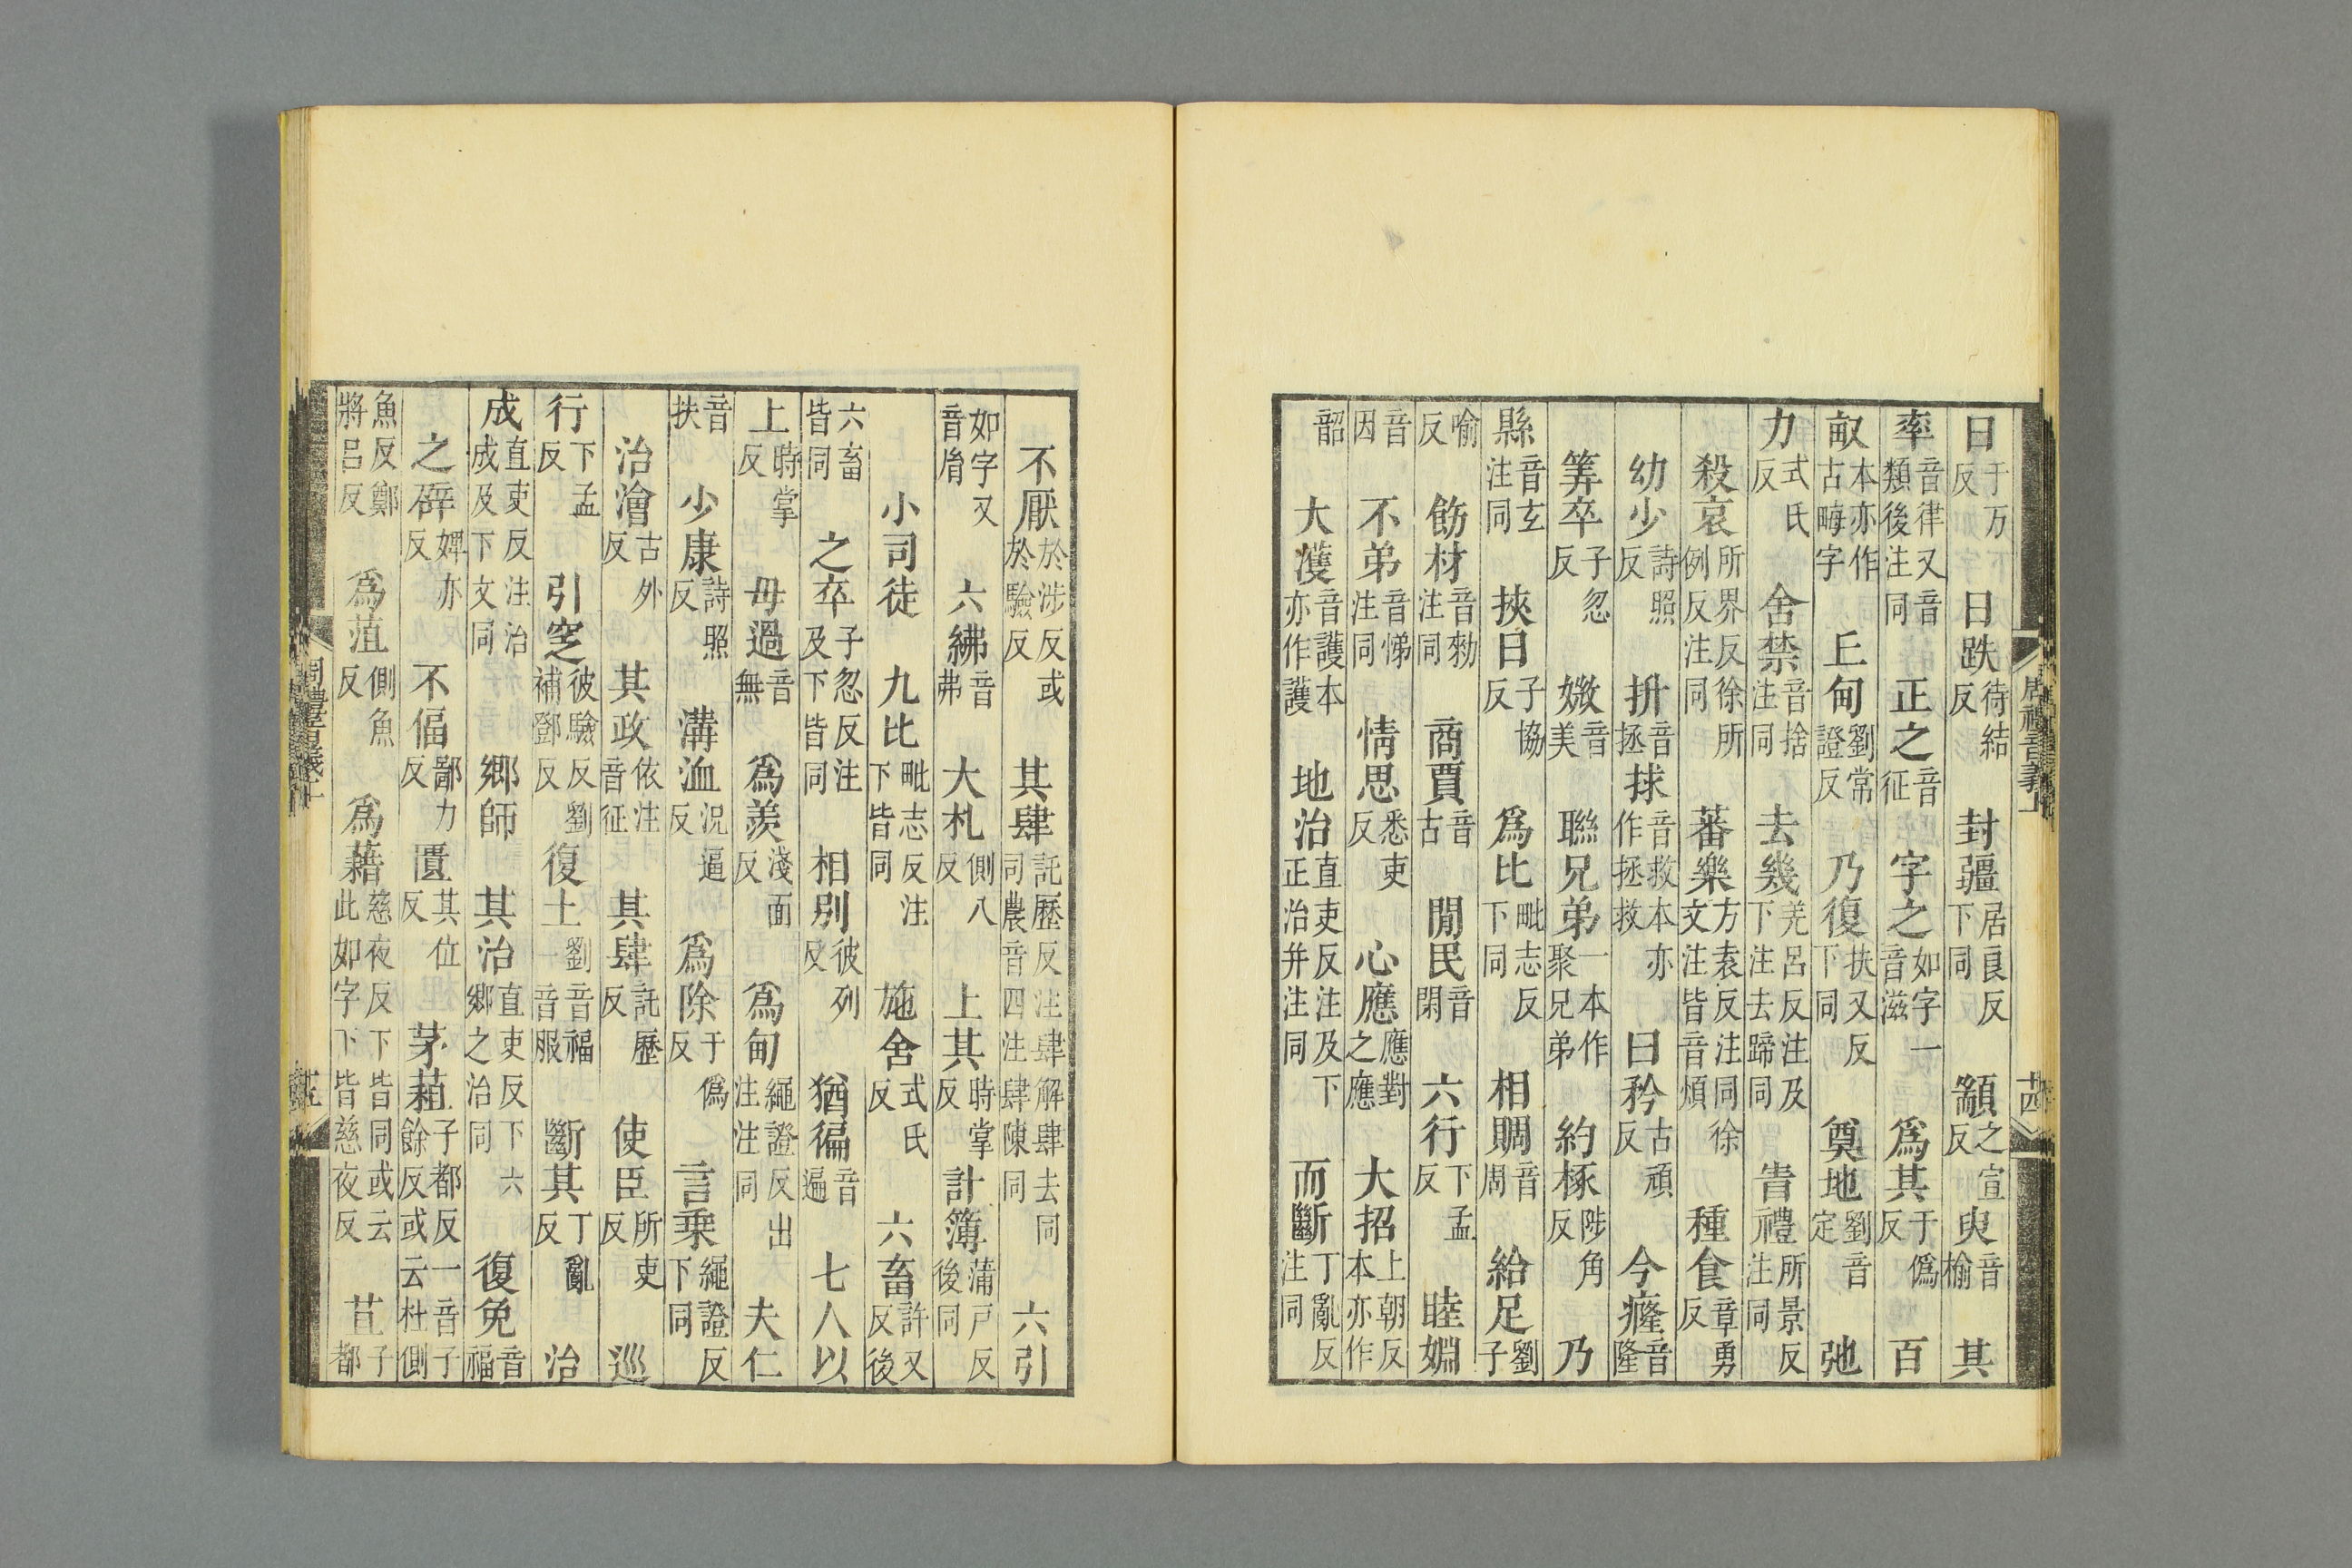 曰于万反 日跌待結反 封疆居良反下同 顓之宣反 臾音榆 其
率音律又音類後注同 正之音征 字之如字一音滋 爲其于僞反 百
畝本亦作古畮字 丘甸劉常證反 乃復扶又反下同 奠地劉音定 弛
力式氏反 舍禁音捨注同 去幾羌呂反注及下注去蹄同 眚禮所景反注同
殺哀所界反徐所例反注同 蕃樂方袁反注同徐文注皆音煩 種食章勇反
幼少詩照反 拚音拯 捄音救本亦作拯救 曰矜古頑反 今癃音隆
筭卒子忽反 媺音美 聯兄弟一本作聚兄弟 約椓陟角反 乃
縣音玄注同 挾日子協反 爲比毗志反下同 相賙音周 給足劉子
喻反 飭材音勑注同 商賈音古 閒民音閑 六行下孟反 睦婣
音因 不弟音悌注同 情思悉吏反 心應應對之應 大招上朝反本亦作
韶 大濩音護本亦作護 地治直吏反注及下正治幷注同 而斷丁亂反注同
周禮音義上 十四
不厭於涉反或於驗反 其肆託歷反注肆解肆去同農音四注肆陳同 六引
如字又音胤 六紼音弗 大札側八反 上其時掌反 計簿蒲戶反後同
小司徒 九比毗志反注下皆同 施舍式氏反 六畜許又反後
六畜皆同 之卒子忽反注及下皆同 相別彼列反 猶徧音遍 七人以
上時掌反 毋過音無 爲羨淺面反 爲甸繩證反出注注同 夫仁
音扶 少康詩照反 溝洫況逼反 爲除于僞反 言乗繩證反下同
治澮古外反 其政依注音征 其肆託歷反 使臣所吏反 巡
行下孟反 引窆彼驗反劉補鄧反 復土劉音福一音服 斷其丁亂反 治
成直吏反注治成及下文同 鄉師 其治直吏反下六鄉之治同 復免音福
之辟婢亦反 不偪鄙力反 匱其位反 茅蒩子都反一音子餘反或云杜側
魚反鄭將呂反 爲菹側魚反 爲藉慈夜反下皆同或云此如字下皆慈夜反 苴子都
周禮音義上 十五